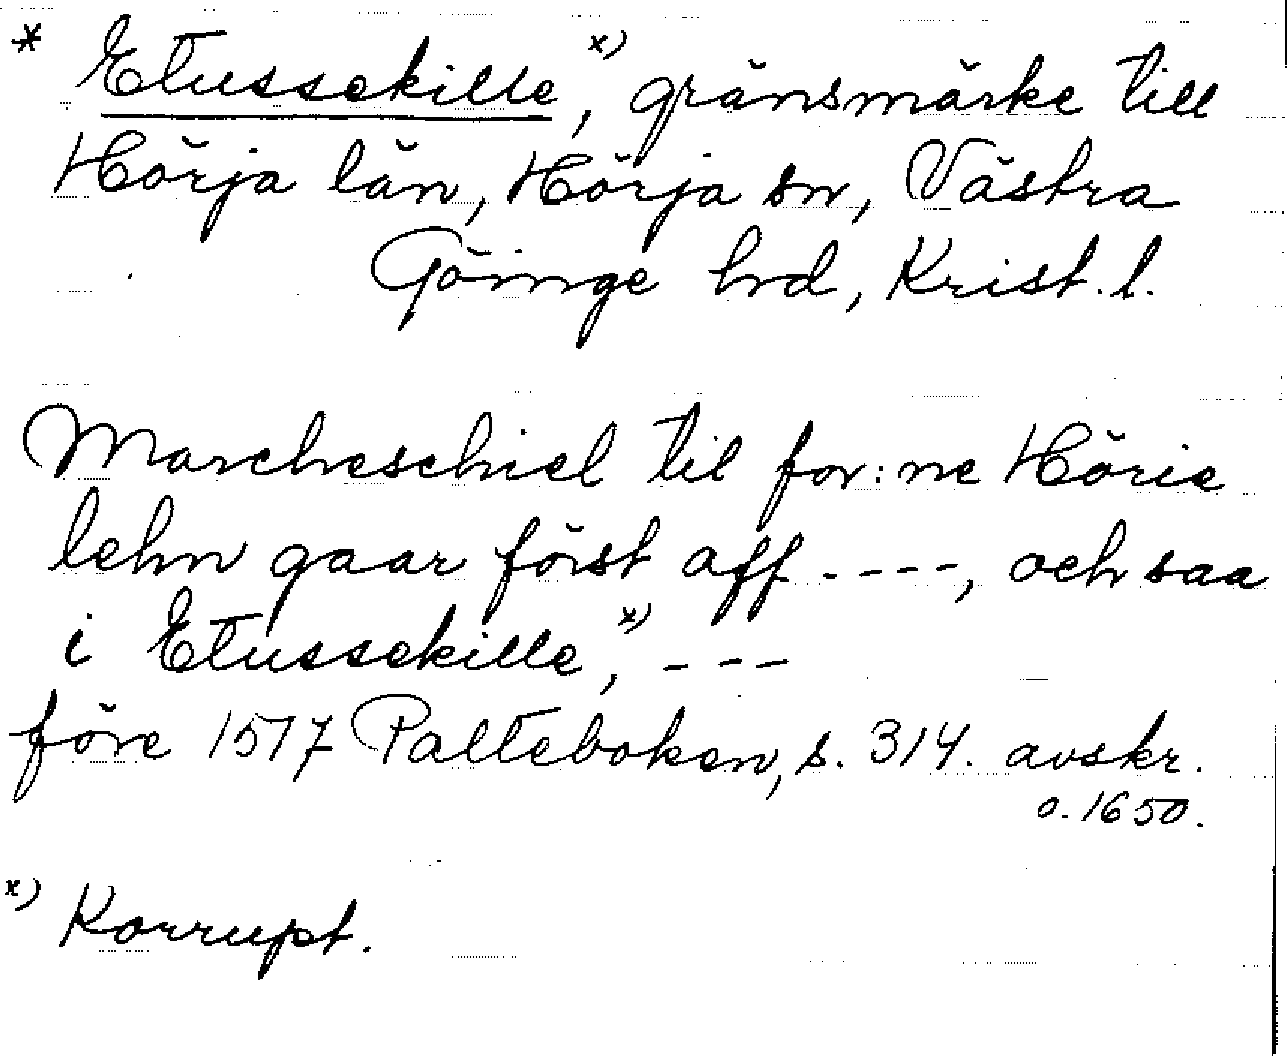 * Etussekille x), gränsmärke till
Hörja län, Hörja sn, Västra
Göinge hrd, Krist. l.
Marcheschiel til for:ne Hörie
lehn gaar först aff ----, och saa
i Etussekille x), ---
före 1517 Palteboken, s. 314. avskr.
o. 1650.
x) Korrupt.